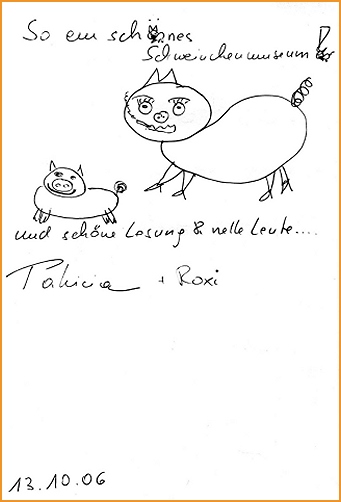 So ein schönes
Schweinchenmuseum!
und schöne Lesung & nette Leute....
Patricia + Roxi
13.10.06